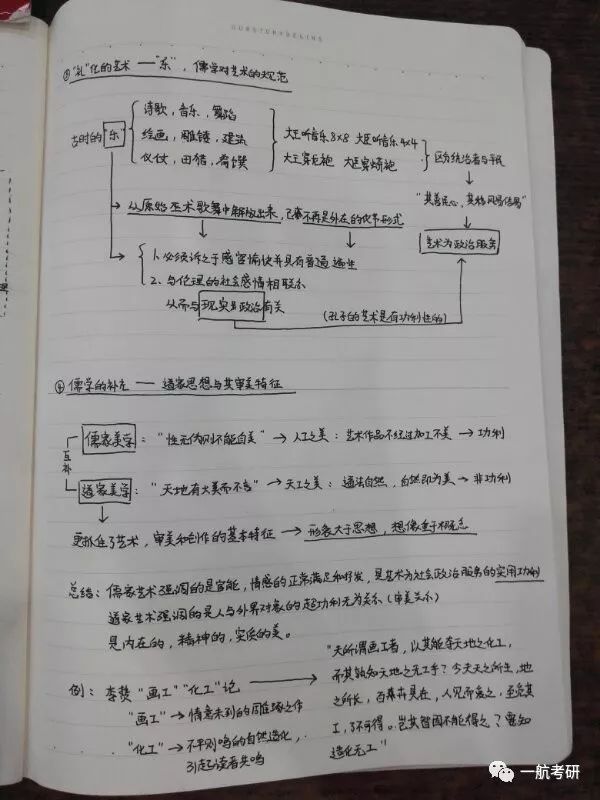 ③"礼"化的艺术——"乐",儒学对艺术的规范
古时的"乐"
诗歌,音乐,舞蹈
绘画,雕镂,建筑
仪仗,田猎,肴馔
大王听音乐8×8 大臣听音乐4×4
大王穿龙袍 大臣穿蟒袍
区分统治者与平民
"其善民心,其移风易俗易"
艺术为政治服务
从原始巫术歌舞中解放出来,已不再是外在的仪节形式
1、必须诉之于感官愉快并具有普遍性
2、与伦理的社会感情相联系
从而与现实政治有关
(孔子的艺术是有功利性的)
④儒学的补充——道家思想与其审美特征
儒家美学:"性无伪则不能自美"→人工之美:艺术作品不经过加工不美→功利
互补
道家美学:"天地有大美而不言"→天工之美:道法自然,自然即为美→非功利
更抓住了艺术,审美和创作的基本特征→形象大于思想,想像重于概念
总结:儒家艺术强调的是官能,情感的正常满足和抒发,是艺术为社会政治服务的实用功利
道家艺术强调的是人与外界对象的超功利无为关系(审美关系)
是内在的,精神的,实质的美。
例:李贽"画工""化工"记
"画工"→情意未到的雕琢之作
"化工"→不平则鸣的自然造化,
引起读者共鸣
"夫所谓画工者,以其能夺天地之化工,
而其孰知天地之无工乎?今夫天之所生,地
之所长,百卉具在,人见而爱之,至觅其
工,了不可得。岂其智固不能得之?要知
造化无工"
一航考研